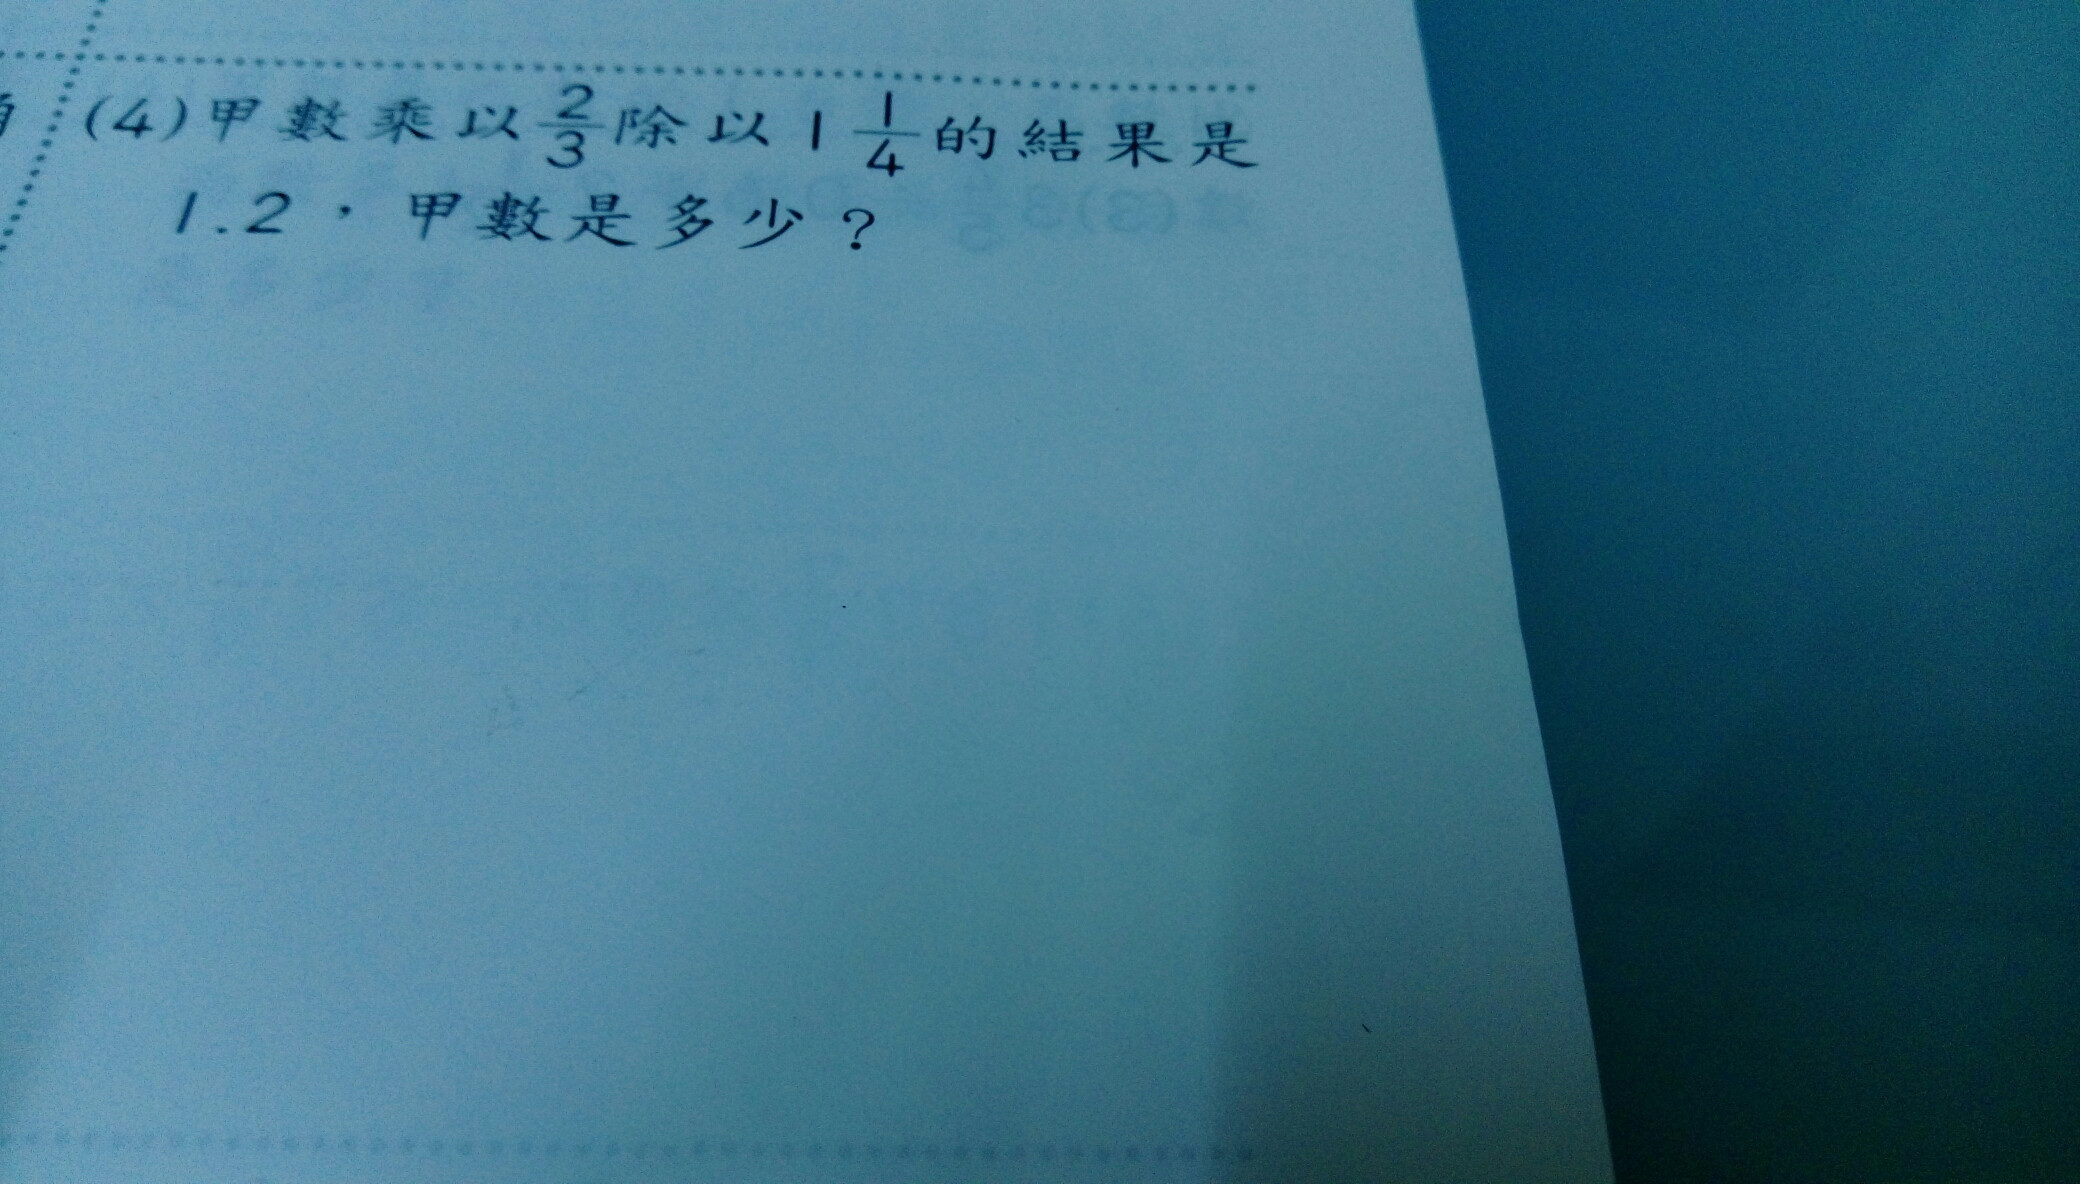 (4)甲數乘以2/3除以1 1/4的結果是
1.2，甲數是多少？